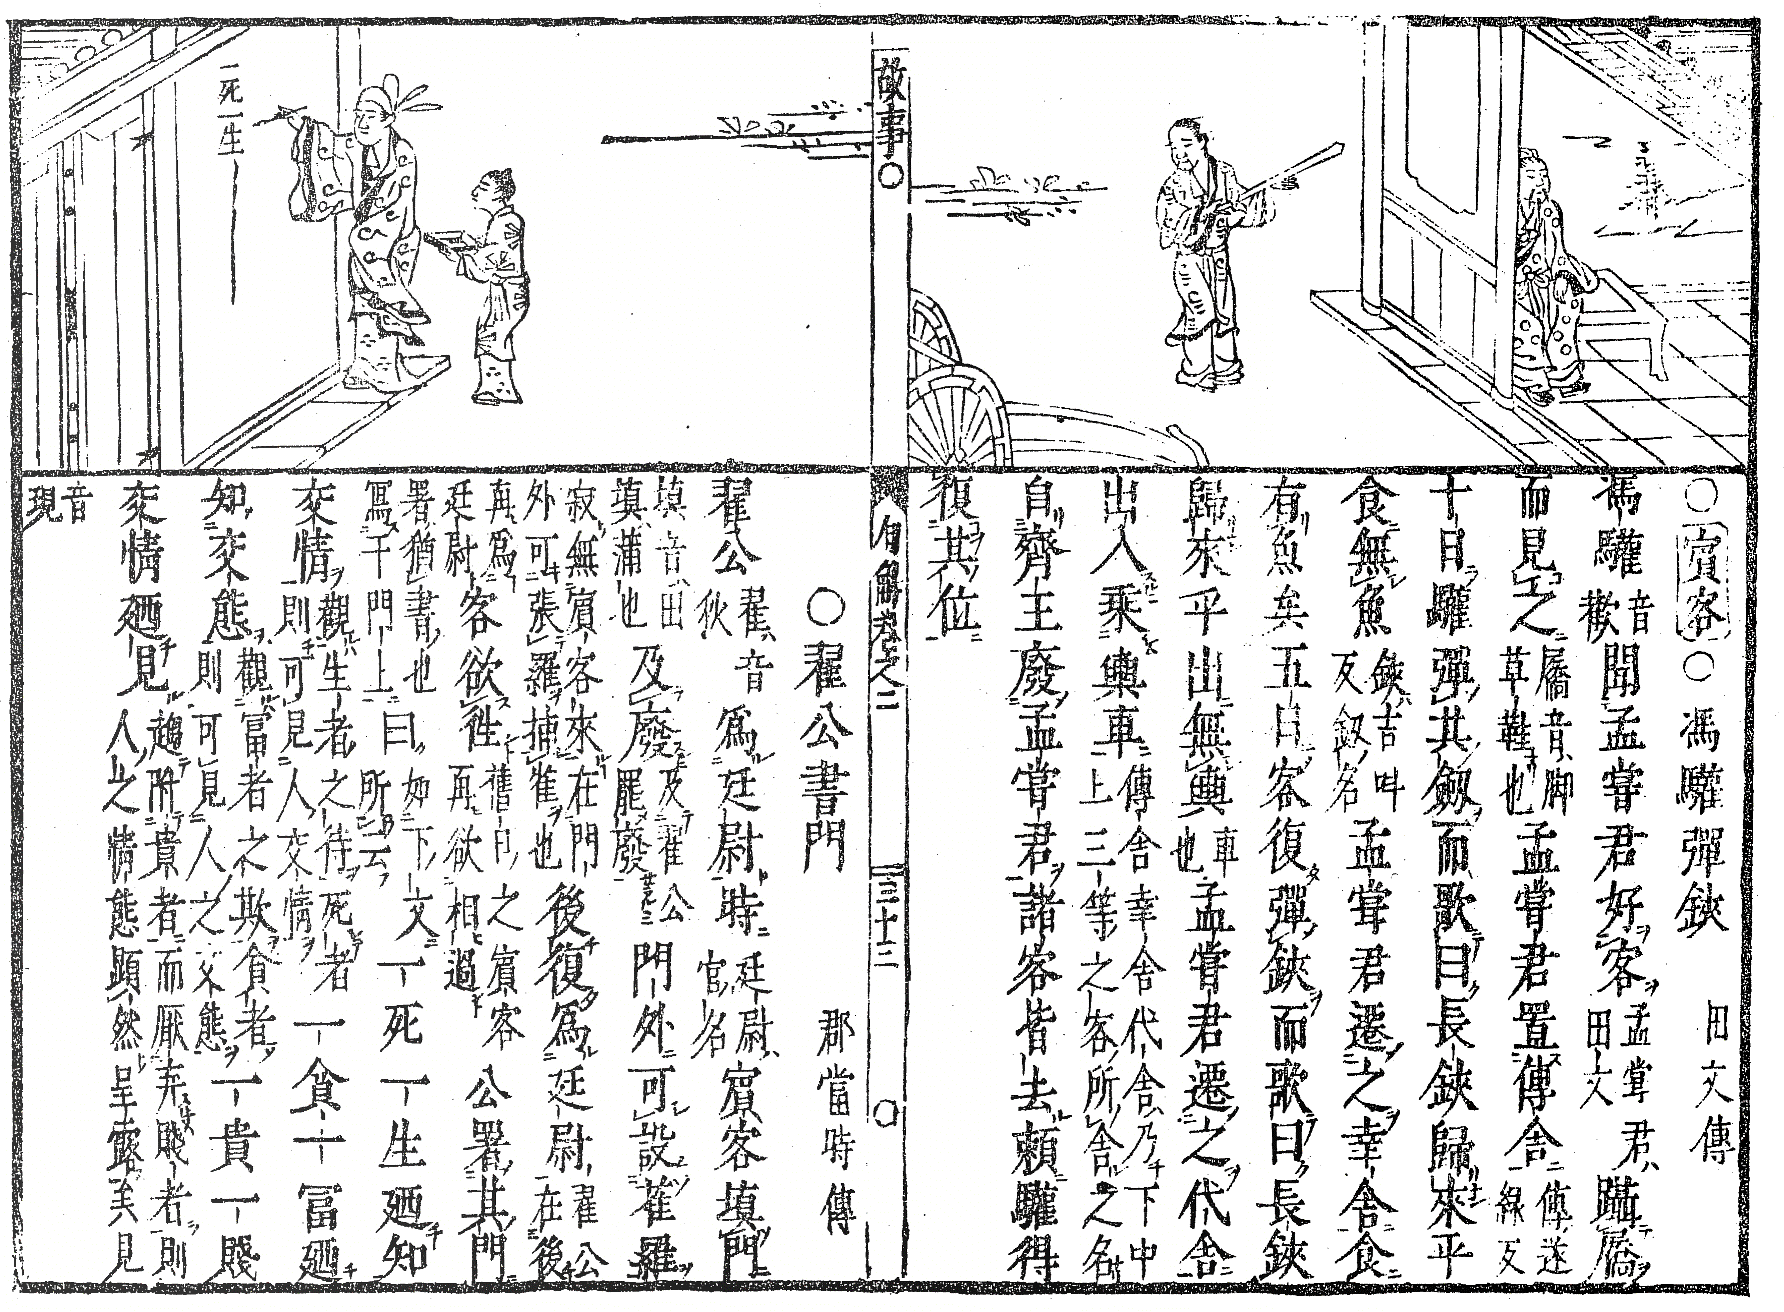 ○賓客○馮驩彈鋏 田文傳
馮驩音歡聞孟嘗君好客孟嘗君田文躡屩
而見之屩音脚草鞋也孟嘗君置傳舍傳逐線反
十日驩彈其劔而歌曰長鋏歸來乎
食無魚鋏吉叫反劔名孟嘗君遷之幸舍食
有魚矣五日客復彈鋏而歌曰長鋏
歸來乎出無輿車也孟嘗君遷之代舍
出入乘輿車傳舍幸舍代舍乃下中上三等之客所舍之名
自齊王廢孟嘗君諸客皆去賴驩得
復其位
故事○
句解卷之二 三十三 ○
一死一生
○翟公書門 鄭當時傳
翟公翟音狄爲廷尉時廷尉官名賓客填門
填音田填蒲也及廢及翟公罷廢門外可設雀羅
寂無賓客來在門外可張羅捕雀也後復爲廷尉翟公在後
再爲廷尉客欲徃舊日之賓客再欲相過公署其門
署猶書也寫于門上曰如下文所云一死一生廼知
交情觀生者之待死者則可見人交情一貧一富廼
知交態觀富者之欺貧者則可見人之交態一貴一賤
交情廼見趨附貴者而厭弃賤者則人之情態顯然呈露矣見
音現